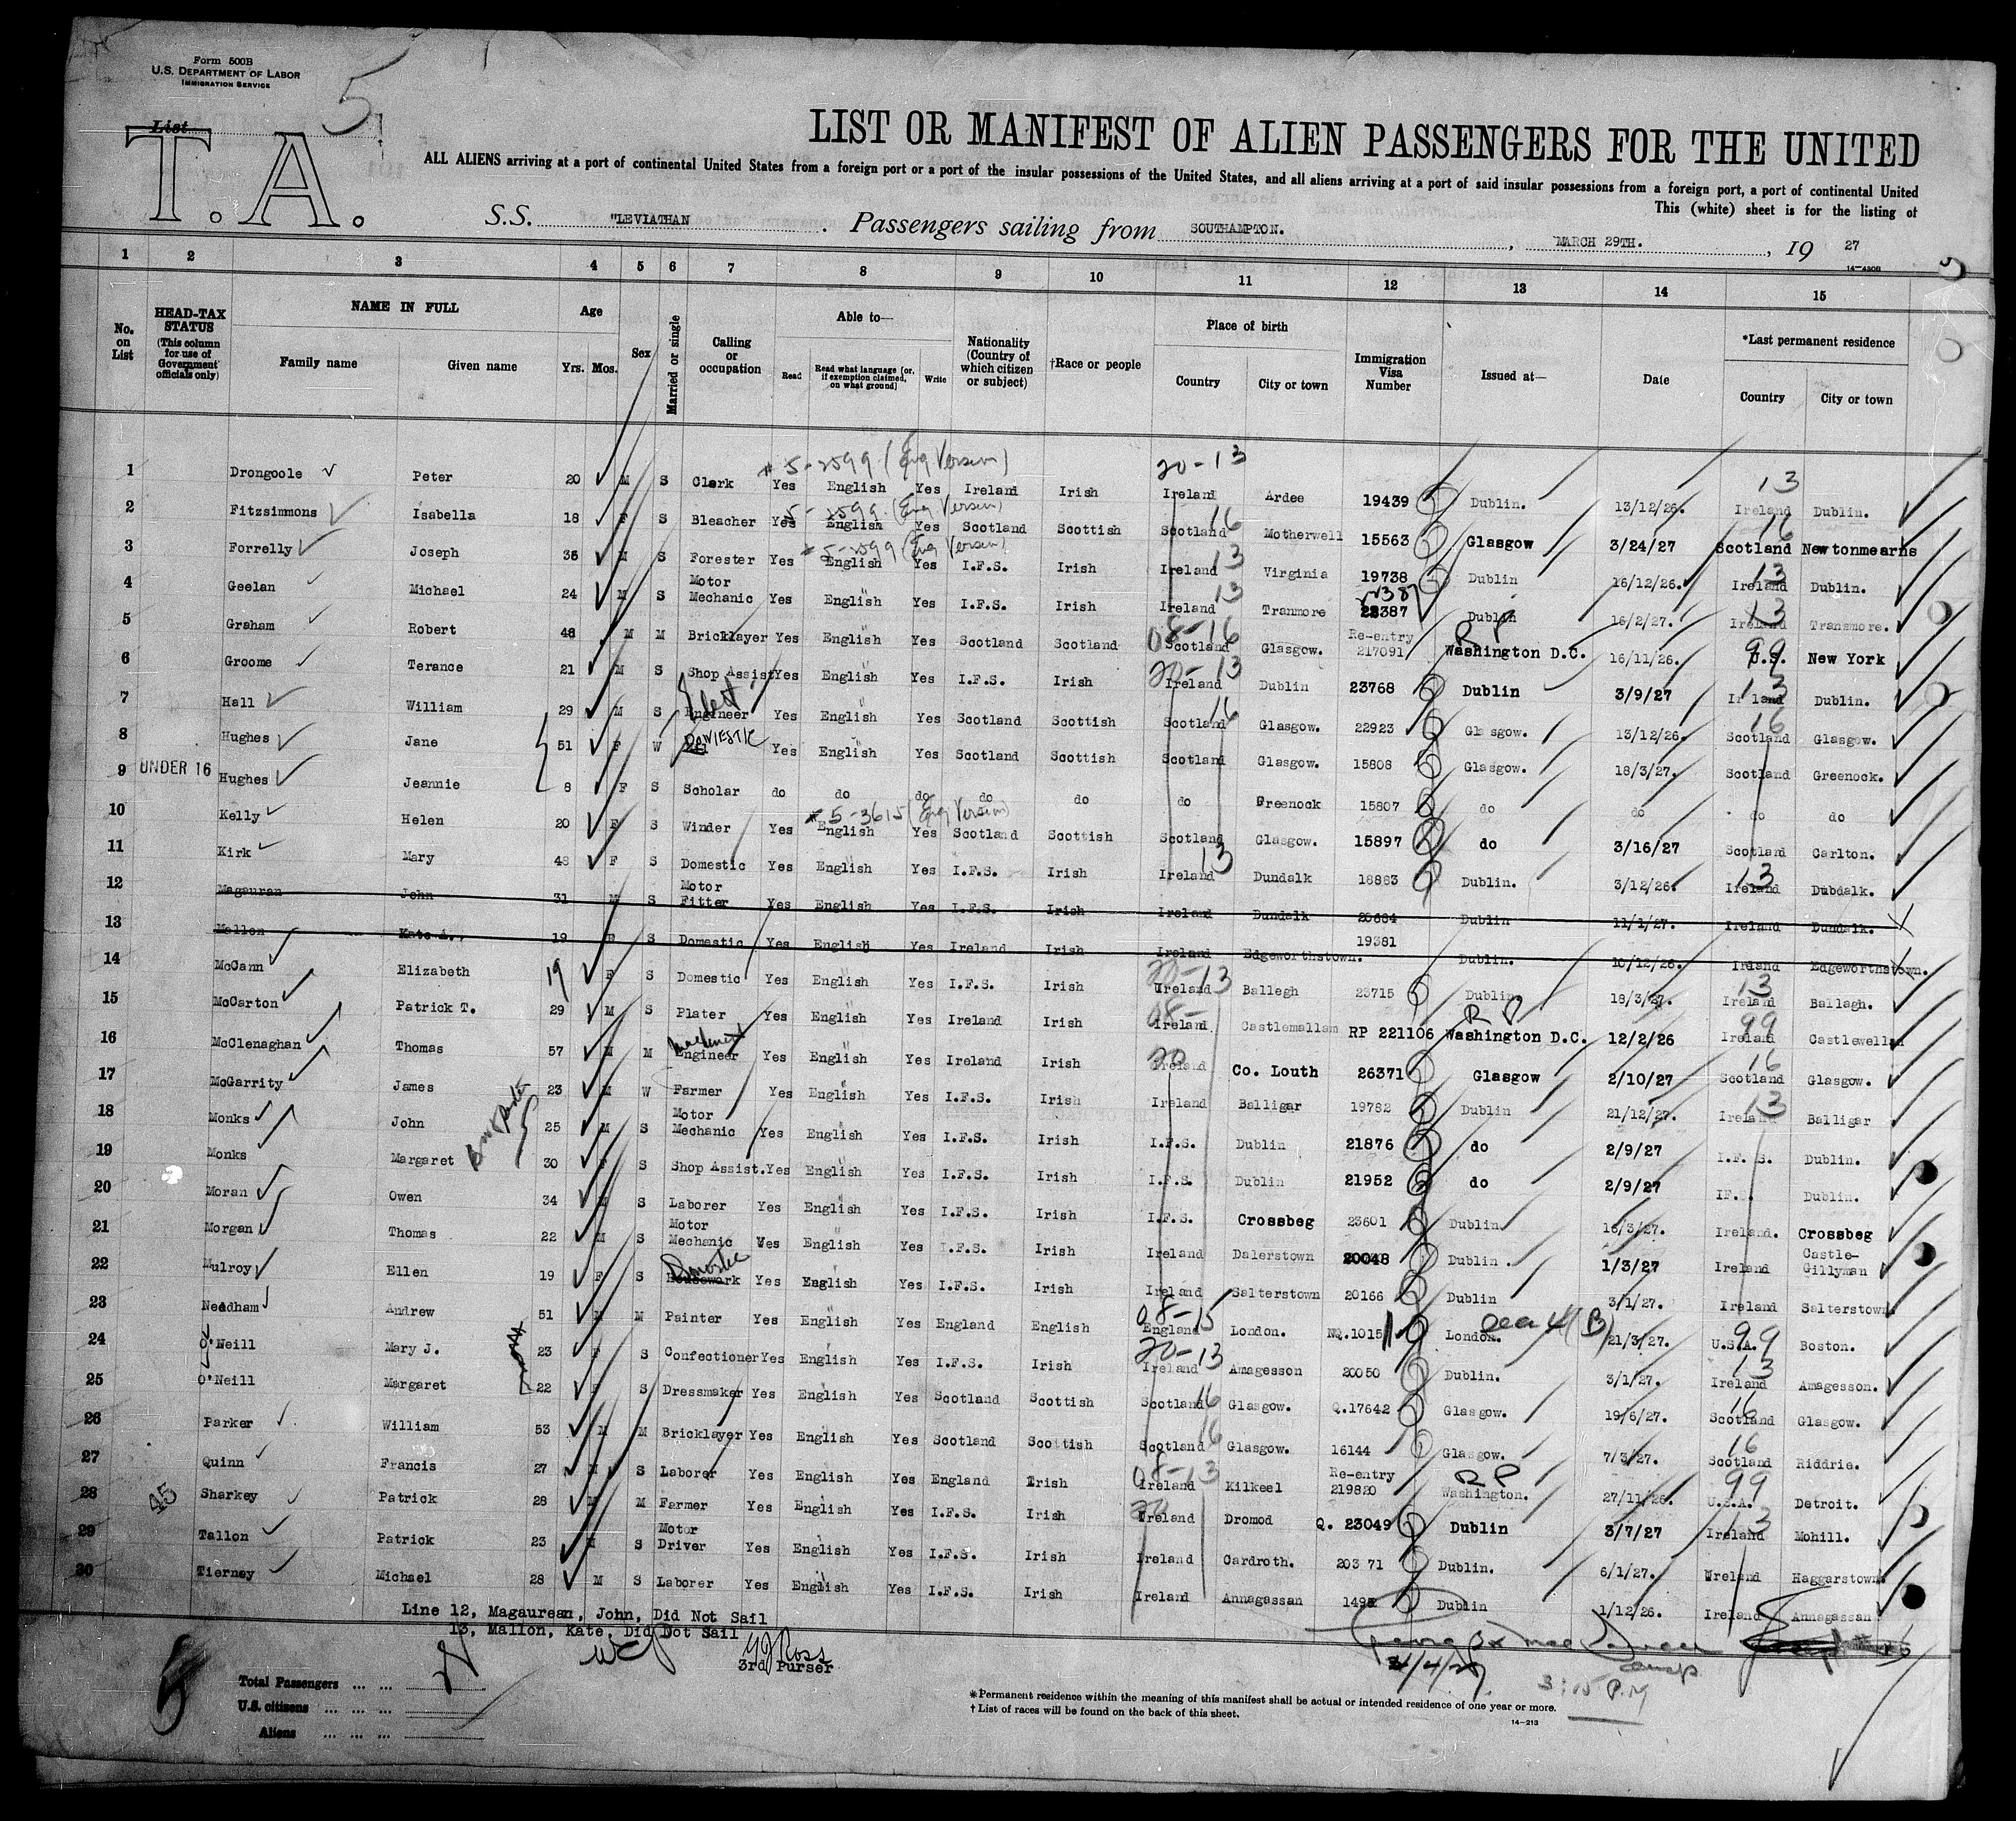 Form 500B
U.S. DEPARTMENT OF LABOR
IMMIGRATION SERVICE
5
List
T. A.
LIST OR MANIFEST OF ALIEN PASSENGERS FOR THE UNITED
ALL ALIENS arriving at a port of continental United States from a foreign port or a port of the insular possessions of the United States, and all aliens arriving at a port of said insular possessions from a foreign port, a port of continental United
This (white) sheet is for the listing of
S.S. "LEVIATHAN Passengers sailing from SOUTHAMPTON. , MARCH 29TH. , 19 27
1 2 3 4 5 6 7 8 9 10 11 12 13 14 15
No. on List
HEAD-TAX STATUS (This column for use of Government officials only)
NAME IN FULL Family name Given name
Age Yrs. Mos.
Sex
Married or single
Calling or occupation
Able to— Read Read what language (or, if exemption claimed, on what ground) Write
Nationality (Country of which citizen or subject)
†Race or people
Place of birth Country City or town
Immigration Visa Number
Issued at—
Date
*Last permanent residence Country City or town
5-2599 (Eng Version) 20-13 13
1 Drongoole Peter 20 M S Clerk Yes English Yes Ireland Irish Ireland Ardee 19439 Dublin. 13/12/26. Ireland Dublin.
5-2599 (Eng Version) 16 16
2 Fitzsimmons Isabella 18 F S Bleacher Yes English Yes Scotland Scottish Scotland Motherwell 15563 Glasgow 3/24/27 Scotland Newtonmearns
5-2599 (Eng Version) 13 13
3 Forrelly Joseph 35 M S Forester Yes English Yes I.F.S. Irish Ireland Virginia 19738 Dublin 16/12/26. Ireland Dublin.
13 13
4 Geelan Michael 24 M S Motor Mechanic Yes English Yes I.F.S. Irish Ireland Tranmore 22387 Dublin 16/2/27. Ireland Transmore.
08-16 RP 99
5 Graham Robert 48 M M Bricklayer Yes English Yes Scotland Scotland Scotland Glasgow. Re-entry 217091 Washington D.C. 16/11/26. U.S. New York
20-13 13
6 Groome Terance 21 M S Shop Assist Yes English Yes I.F.S. Irish Ireland Dublin 23768 Dublin 3/9/27 Ireland Dublin.
16 16
7 Hall William 29 M S Engineer Yes English Yes Scotland Scottish Scotland Glasgow. 22923 Glasgow. 13/12/26. Scotland Glasgow.
DOMESTIC
8 Hughes Jane 51 F W Yes English Yes Scotland Scottish Scotland Glasgow. 15808 Glasgow. 18/3/27. Scotland Greenock.
9 UNDER 16 Hughes Jeannie 8 F S Scholar do do do do do do Greenock 15807 do do do do
5-3615 (Eng Version)
10 Kelly Helen 20 F S Winder Yes English Yes Scotland Scottish Scotland Glasgow. 15897 do 3/16/27 Scotland Carlton.
13 13
11 Kirk Mary 48 F S Domestic Yes English Yes I.F.S. Irish Ireland Dundalk 18883 Dublin. 3/12/26. Ireland Dubdalk.
12 Magauran John 31 M S Motor Fitter Yes English Yes I.F.S. Irish Ireland Dundalk 20684 Dublin 11/1/27. Ireland Dundalk.
13 Mallon Kate 19 F S Domestic Yes English Yes Ireland Irish Ireland Edgeworthstown. 19381 Dublin. 10/12/26. Ireland Edgeworthstown.
20-13 13
14 McCann Elizabeth 19 F S Domestic Yes English Yes I.F.S. Irish Ireland Ballegh 23715 Dublin 18/3/27. Ireland Ballagh.
08- RP 99
15 McCarton Patrick T. 29 M S Plater Yes English Yes Ireland Irish Ireland. Castlemallam RP 221106 Washington D.C. 12/2/26 Ireland Castlewellan
Machinist 20 16
16 McClenaghan Thomas 57 M M Engineer Yes English Yes Ireland Irish Ireland Co. Louth 26371 Glasgow 2/10/27 Scotland Glasgow.
13
17 McGarrity James 23 M W Farmer Yes English Yes I.F.S. Irish Ireland Balligar 19782 Dublin 21/12/27. Ireland Balligar
18 Monks John 25 M S Motor Mechanic Yes English Yes I.F.S. Irish I.F.S. Dublin 21876 do 2/9/27 I.F.S. Dublin.
19 Monks Margaret 30 F S Shop Assist. Yes English Yes I.F.S. Irish I.F.S. Dublin 21952 do 2/9/27 IF.. Dublin.
20 Moran Owen 34 M S Laborer Yes English Yes I.F.S. Irish I.F.S. Crossbeg 23601 Dublin 16/3/27. Ireland. Crossbeg
21 Morgan Thomas 22 M S Motor Mechanic Yes English Yes I.F.S. Irish Ireland Dalerstown 20048 Dublin. 1/3/27 Ireland Castle-Gillyman
Domestic
22 Mulroy Ellen 19 F S Housework Yes English Yes I.F.S. Irish Ireland Salterstown 20166 Dublin 3/1/27. Ireland Salterstown
08-15 4(B) 99
23 Needham Andrew 51 M M Painter Yes English Yes England English England London. NQ.1015 London. 21/3/27. U.S.A. Boston.
20-13 13
24 O'Neill Mary J. 23 F S Confectioner Yes English Yes I.F.S. Irish Ireland Amagesson 20050 Dublin. 3/1/27. Ireland Amagesson.
16 16
25 O'Neill Margaret 22 F S Dressmaker Yes English Yes Scotland Scottish Scotland Glasgow. Q.17642 Glasgow. 19/6/27. Scotland Glasgow.
16 16
26 Parker William 53 M M Bricklayer Yes English Yes Scotland Scottish Scotland Glasgow. 16144 Glasgow. 7/3/27. Scotland Riddrie.
08-13 RP 99
27 Quinn Francis 27 M S Laborer Yes English Yes England Irish Ireland Kilkeel Re-entry 219820 Washington. 27/11/26. U.S.A. Detroit.
45 20 13
28 Sharkey Patrick 28 M M Farmer Yes English Yes I.F.S. Irish Ireland Dromod Q. 23049 Dublin 3/7/27 Ireland Mohill.
29 Tallon Patrick 23 M S Motor Driver Yes English Yes I.F.S. Irish Ireland Cardroth. 20371 Dublin. 6/1/27. Ireland Haggarstown.
30 Tierney Michael 28 M S Laborer Yes English Yes I.F.S. Irish Ireland Annagassan Dublin 1/12/26. Ireland Annagassan
Line 12, Magaurean, John, Did Not Sail
13, Mallon, Kate, Did Not Sail
Ross
3rd Purser
3:15 P.M
Total Passengers ... ...
U.S. citizens ... ... ...
Aliens ... ... ...
*Permanent residence within the meaning of this manifest shall be actual or intended residence of one year or more.
† List of races will be found on the back of this sheet.
14-213